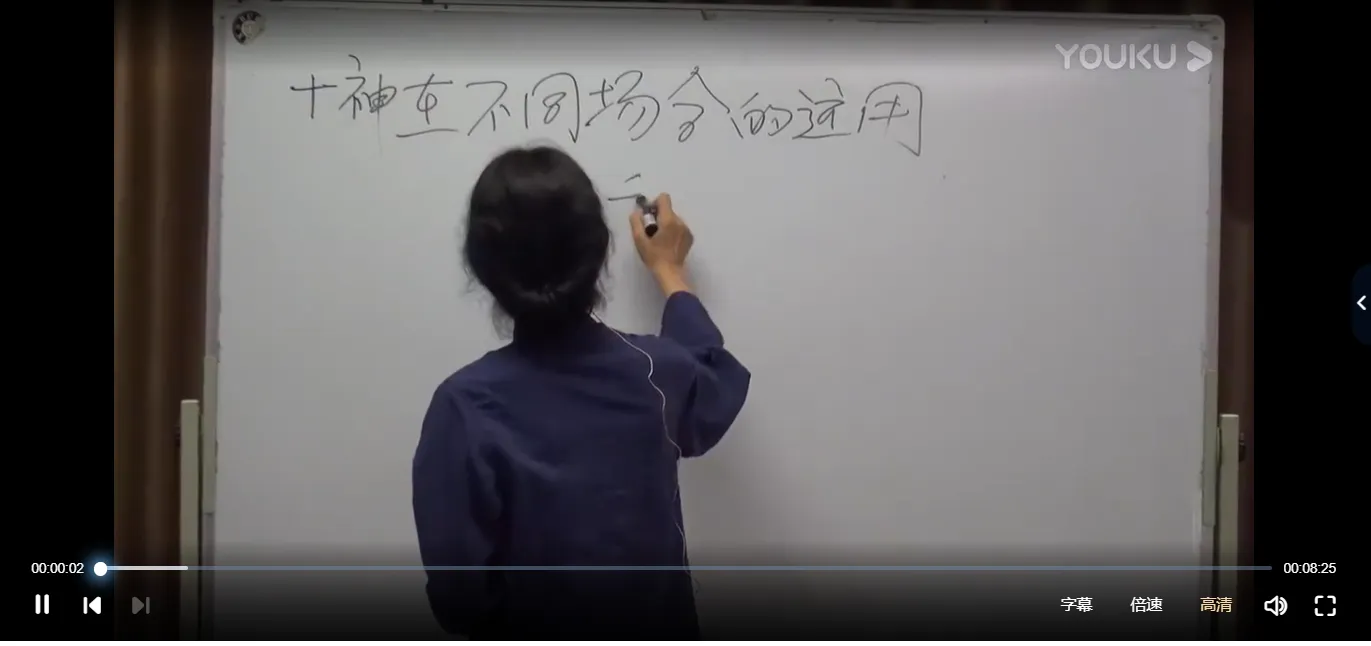 YOUKU
十神在不同场合的运用
00:00:02
00:08:25
字幕
倍速
高清